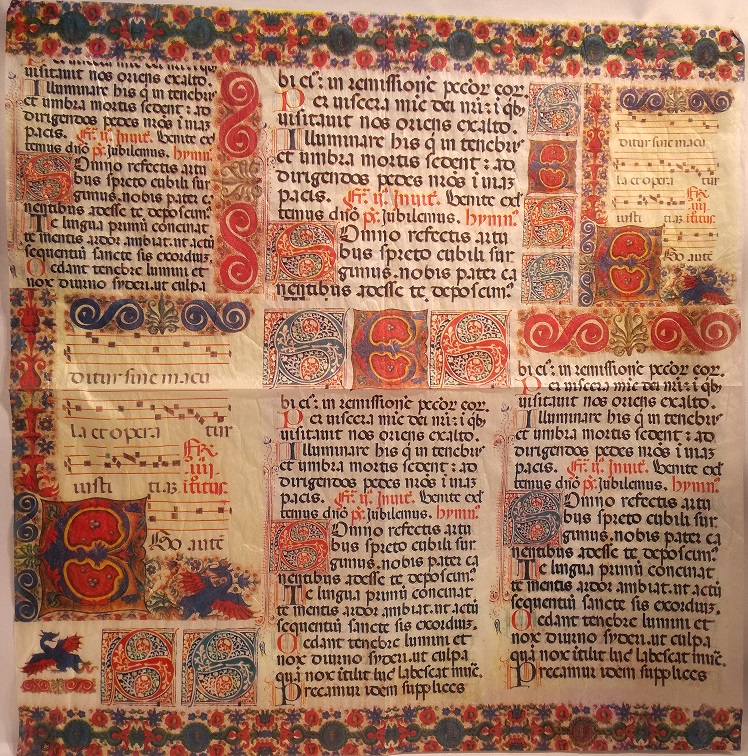 uisitauit nos oriens exalto.
Illuminare his q̄ in tenebris
et umbra mortis sedent: ad
dirigendos pedes nr̄os ī uiaʒ
pacis. Fr̄. ij. Inuit̄. Venite ex
temus dn̄o p̄s. Jubilemus. hymn̄.
Somno refectis artu
bus spreto cubili sur
gimus. nobis pater ca
nentibus adesse te deposcim᷒
Te lingua primū concinat
te mentis ardor ambiat. ut actū
sequentiū sancte sis exordiuʒ.
Cedant tenebre lumini et
nox diurno syderi. ut culpa
bi es᷒: in remissionē pecc̄oꝝ eoꝝ.
Per uiscera mīe dei nr̄i: ī qb᷒
uisitauit nos oriens exalto.
Illuminare his q̄ in tenebris
et umbra mortis sedent: ad
dirigendos pedes nr̄os ī uiaʒ
pacis. Fr̄. ij. Inuit̄. Venite exl
temus dn̄o p̄s. Jubilemus. hymn̄.
Somno refectis artu
bus spreto cubili sur
gimus. nobis pater ca
nentibus adesse te deposcim᷒
ditur sine macu
la et opera tur
iusti tiaʒ
Ego autē
ditur sine macu
la et opera tur
iusti tiaʒ
Ego autē
bi es᷒: in remissionē pecc̄oꝝ eoꝝ.
Per uiscera mīe dei nr̄i: ī qb᷒
uisitauit nos oriens exalto.
Illuminare his q̄ in tenebris
et umbra mortis sedent: ad
dirigendos pedes nr̄os ī uiaʒ
pacis. Fr̄. ij. Inuit̄. Venite exl
temus dn̄o p̄s. Jubilemus. hymn̄.
Somno refectis artu
bus spreto cubili sur
gimus. nobis pater ca
nentibus adesse te deposcim᷒
Te lingua primū concinat
te mentis ardor ambiat. ut actū
sequentiū sancte sis exordiuʒ.
Cedant tenebre lumini et
nox diurno syderi. ut culpa
quā nox ītulit luc̄ labescat mun̄.
Precamur idem supplices
bi es᷒: in remissionē pecc̄oꝝ eoꝝ.
Per uiscera mīe dei nr̄i: ī qb᷒
uisitauit nos oriens exalto.
Illuminare his q̄ in tenebris
et umbra mortis sedent: ad
dirigendos pedes nr̄os ī uiaʒ
pacis. Fr̄. ij. Inuit̄. Venite exl
temus dn̄o p̄s. Jubilemus. hymn̄.
Somno refectis artu
bus spreto cubili sur
gimus. nobis pater ca
nentibus adesse te deposcim᷒
Te lingua primū concinat
te mentis ardor ambiat. ut actū
sequentiū sancte sis exordiuʒ.
Cedant tenebre lumini et
nox diurno syderi. ut culpa
quā nox ītulit luc̄ labescat mun̄.
Precamur idem supplices